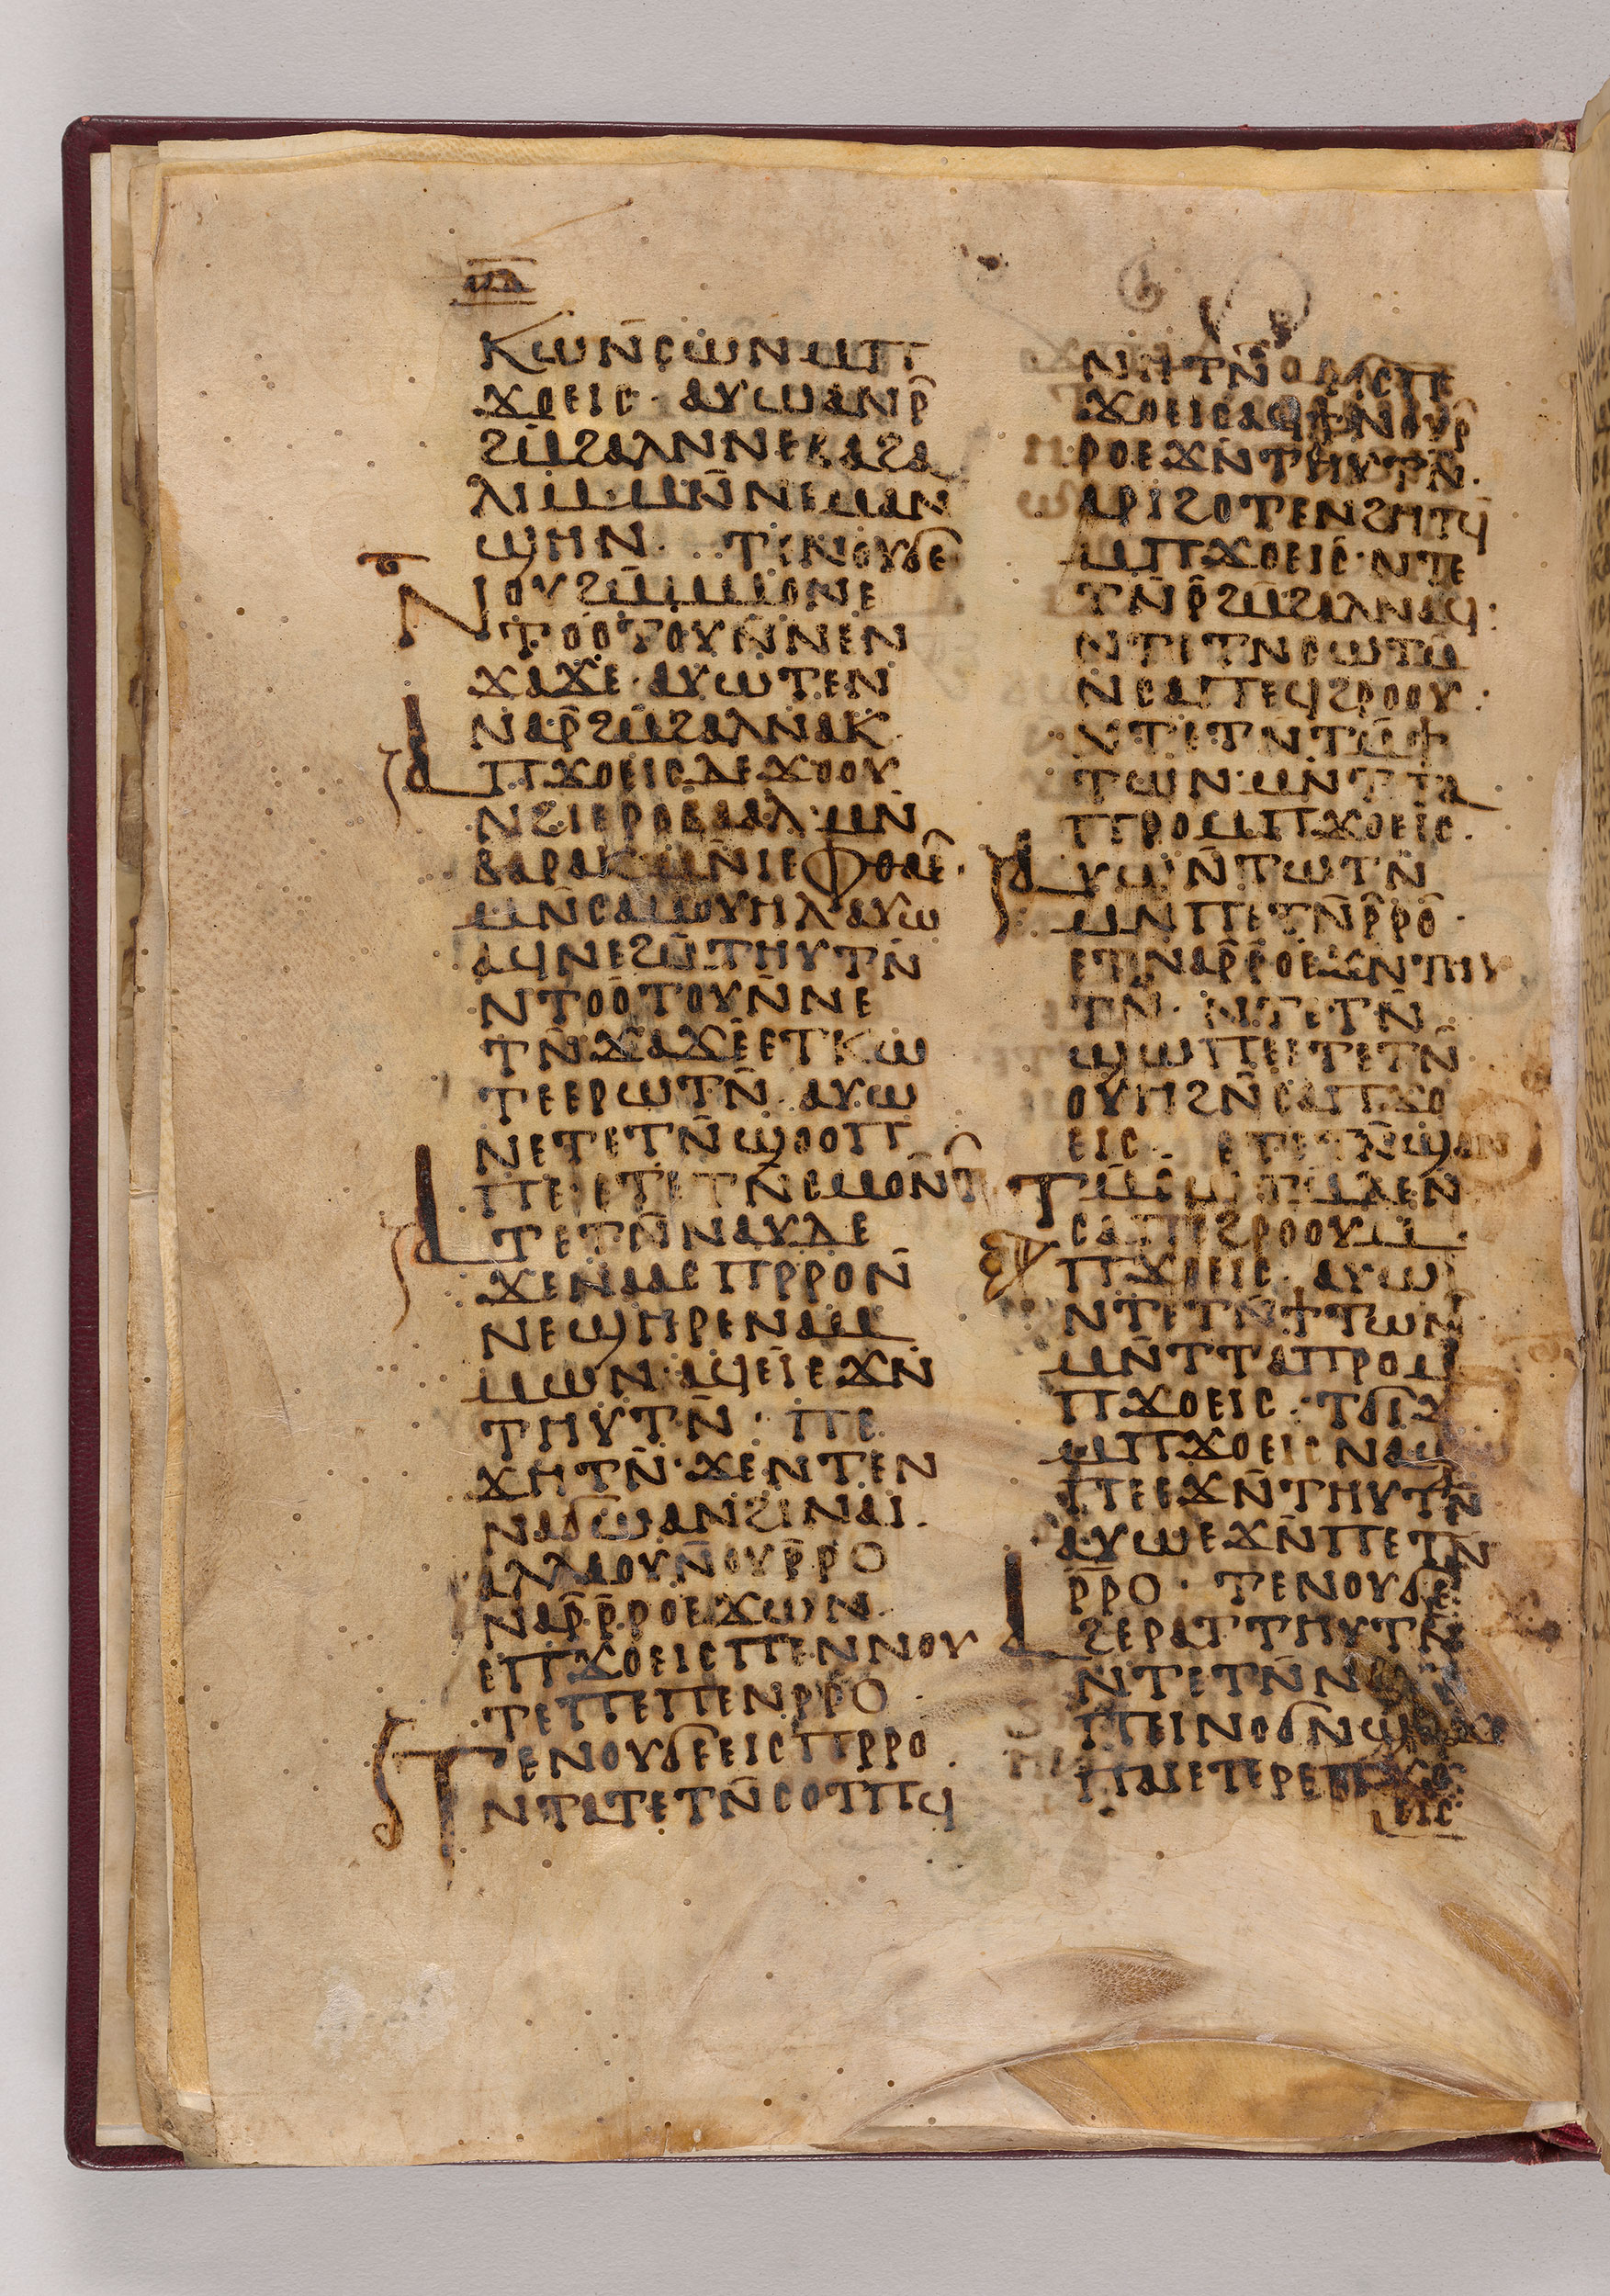 ⲕⲱⲛ̄ⲥⲱⲛⲙⲡ
ϫⲟⲉⲓⲥ· ⲁⲩⲱⲁⲛⲣ̄
ϩⲙ̄ϩⲁⲗⲛⲛⲉⲃⲁϩⲁ
ⲗⲓⲙ· ⲙⲛ̄ⲛⲉⲙⲁⲛ
ϣⲏⲛ· ⲧⲉⲛⲟⲩϭⲉ
ⲛⲟⲩϩⲙ̄ⲙⲙⲟⲛⲉ
ⲛⲧⲟⲟⲧⲟⲩⲛ̄ⲛⲉⲛ
ϫⲁϫⲉ· ⲁⲩⲱⲧⲉⲛ
ⲛⲁⲣ̄ϩⲙ̄ϩⲁⲗⲛⲁⲕ·
ⲁⲡϫⲟⲉⲓⲥⲇⲉϫⲟⲟⲩ
ⲛϩⲓⲉⲣⲟⲃⲁⲁⲗ· ⲙⲛ̄
ⲃⲁⲣⲁⲕ· ⲙⲛ̄ⲓⲉⲫⲑⲁⲉ̄·
ⲙⲛ̄ⲥⲁⲙⲟⲩⲏⲗⲁⲩⲱ
ⲁϥⲛⲉϩⲙ̄ⲧⲏⲩⲧⲛ̄
ⲛⲧⲟⲟⲧⲟⲩⲛ̄ⲛⲉ
ⲧⲛ̄ϫⲁϫⲉⲉⲧⲕⲱ
ⲧⲉⲉⲣⲱⲧⲛ̄· ⲁⲩⲱ
ⲛⲉⲧⲉⲧⲛ̄ϣⲟⲟⲡ
ⲡⲉⲉⲧⲉⲧⲛ̄ⲥⲙⲟⲛ̄ⲧ
ⲁⲧⲉⲧⲛ̄ⲛⲁⲩⲇⲉ
ϫⲉⲛⲁⲁⲥⲡⲣⲣⲟⲛ̄
ⲛⲉϣⲏⲣⲉⲛⲁⲙ
ⲙⲱⲛ· ⲁϥⲉⲓⲉϫⲛ̄
ⲧⲏⲩⲧⲛ̄· ⲡⲉ
ϫⲏⲧⲛ̄· ϫⲉⲛⲧⲉⲛ
ⲛⲁϭⲱⲁⲛϩⲓⲛⲁⲓ·
ⲁⲗⲗⲁⲟⲩⲛ̄ⲟⲩⲣ̄ⲣⲟ
ⲛⲁⲣ̄ⲣ̄ⲣⲟⲉϫⲱⲛ·
ⲉⲡϫⲟⲉⲓⲥⲡⲉⲛⲛⲟⲩ
ⲧⲉⲡⲉⲡⲉⲛⲣ̄ⲣⲟ·
ⲧⲉⲛⲟⲩϭⲉⲉⲓⲥⲡⲣⲣⲟ
ⲛⲧⲁⲧⲉⲧⲛ̄ⲥⲟⲧⲡϥ
ⲛⲏⲧⲛ̄ ⲉⲓⲥⲡⲉ
ϫⲟⲉⲓⲥⲁϥϯⲛⲟⲩⲣ̄
ⲣⲟⲉϫⲛ̄ⲧⲏⲩⲧⲛ̄·
ⲁⲣⲓϩⲟⲧⲉⲛϩⲏⲧϥ
ⲙⲡϫⲟⲉⲓⲥ· ⲛⲧⲉ
ⲧⲛ̄ⲣ̄ϩⲙ̄ϩⲁⲗⲛⲁϥ·
ⲛⲧⲉⲧⲛⲥⲱⲧⲙ̄
ⲛⲥⲁⲡⲉϥϩⲣⲟⲟⲩ·
ⲛⲧⲉⲧⲛ̄ⲧⲙ̄ϯ
ⲧⲱⲛ· ⲙⲛ̄ⲧⲧⲁ
ⲡⲣⲟⲙⲡϫⲟⲉⲓⲥ·
ⲁⲩⲱⲛ̄ⲧⲱⲧⲛ̄
ⲙⲛⲡⲉⲧⲛ̄ⲣ̄ⲣⲟ̄·
ⲉⲧⲛⲁⲣ̄ⲣ̄ⲣⲟⲉϫⲛ̄ⲧⲏⲩ
ⲧⲛ̄· ⲛⲧⲉⲧⲛ̄
ϣⲱⲡⲉⲉⲧⲉⲧⲛ̄
ⲟⲩⲏϩⲛ̄ⲥⲁⲡϫⲟ
ⲉⲓⲥ· ⲉⲧⲉⲧⲛ̄ϣⲁⲛ
ⲧⲙ̄ⲥⲱⲧⲙ̄ⲇⲉⲛ̄
ⲥⲁⲡⲉϩⲣⲟⲟⲩⲙ·
ⲡϫⲟⲉⲓⲥ· ⲁⲩⲱ
ⲛⲧⲉⲧⲛ̄ϯⲧⲱⲛ
ⲙⲛ̄ⲧⲧⲁⲡⲣⲟⲙ
ⲡϫⲟⲉⲓⲥ· ⲧϭⲓϫ
ⲙⲡϫⲟⲉⲓⲥⲛⲁϣⲱ
ⲡⲉⲉϫⲛ̄ⲧⲏⲩⲧⲛ̄
ⲁⲩⲱⲉϫⲙ̄ⲡⲉⲧⲛ̄
ⲣ̄ⲣⲟ· ⲧⲉⲛⲟⲩϭⲉ
ⲁϩⲉⲣⲁⲧⲧⲏⲩⲧⲛ̄
ⲛⲧⲉⲧⲛ̄ⲛ
ⲡⲉⲓⲛⲟϭⲛ
ⲡⲁⲓⲉⲧⲉⲣⲉⲡϫⲟ
ⲉⲓⲥ